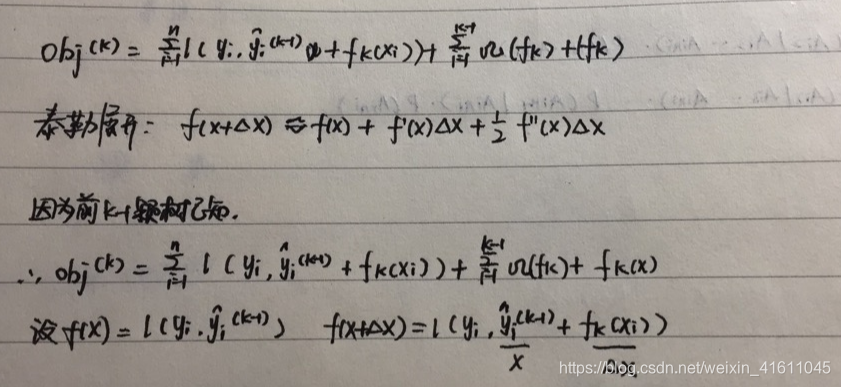 Obj^(k) = Σ_{i=1}^{n} l(yi, ŷi^(k-1) + fk(xi)) + Σ_{i=1}^{k-1} Ω(fk) + (fk)
泰勒展开: f(x+Δx) ≈ f(x) + f'(x)Δx + 1/2 f''(x)Δx
因为前k-1颗树已知.
∴ obj^(k) = Σ_{i=1}^{n} l(yi, ŷi^(k-1) + fk(xi)) + Σ_{i=1}^{k-1} Ω(fk) + fk(x)
设f(x) = l(yi, ŷi^(k-1)) f(x+Δx) = l(yi, ŷi^(k-1) + fk(xi))
x
https://blog.csdn.net/weixin_41611045